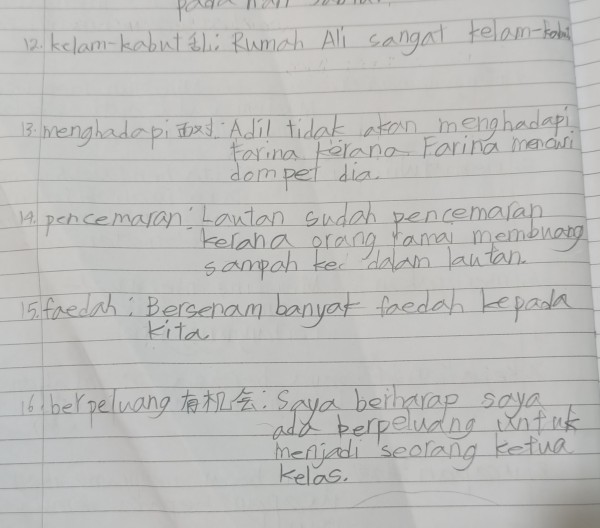 pada hari
12. kelam-kabut 乱: Rumah Ali sangat kelam-kabut
13. menghadapi 面对: Adil tidak akan menghadapi
Farina kerana Farina mencuri
dompet dia.
14. pencemaran: Lautan sudah pencemaran
kerana orang ramai membuang
sampah ke dalam lautan.
15. faedah: Bersenam banyak faedah kepada
kita
16. berpeluang 有机会: Saya berharap saya
ada berpeluang untuk
menjadi seorang ketua
kelas.